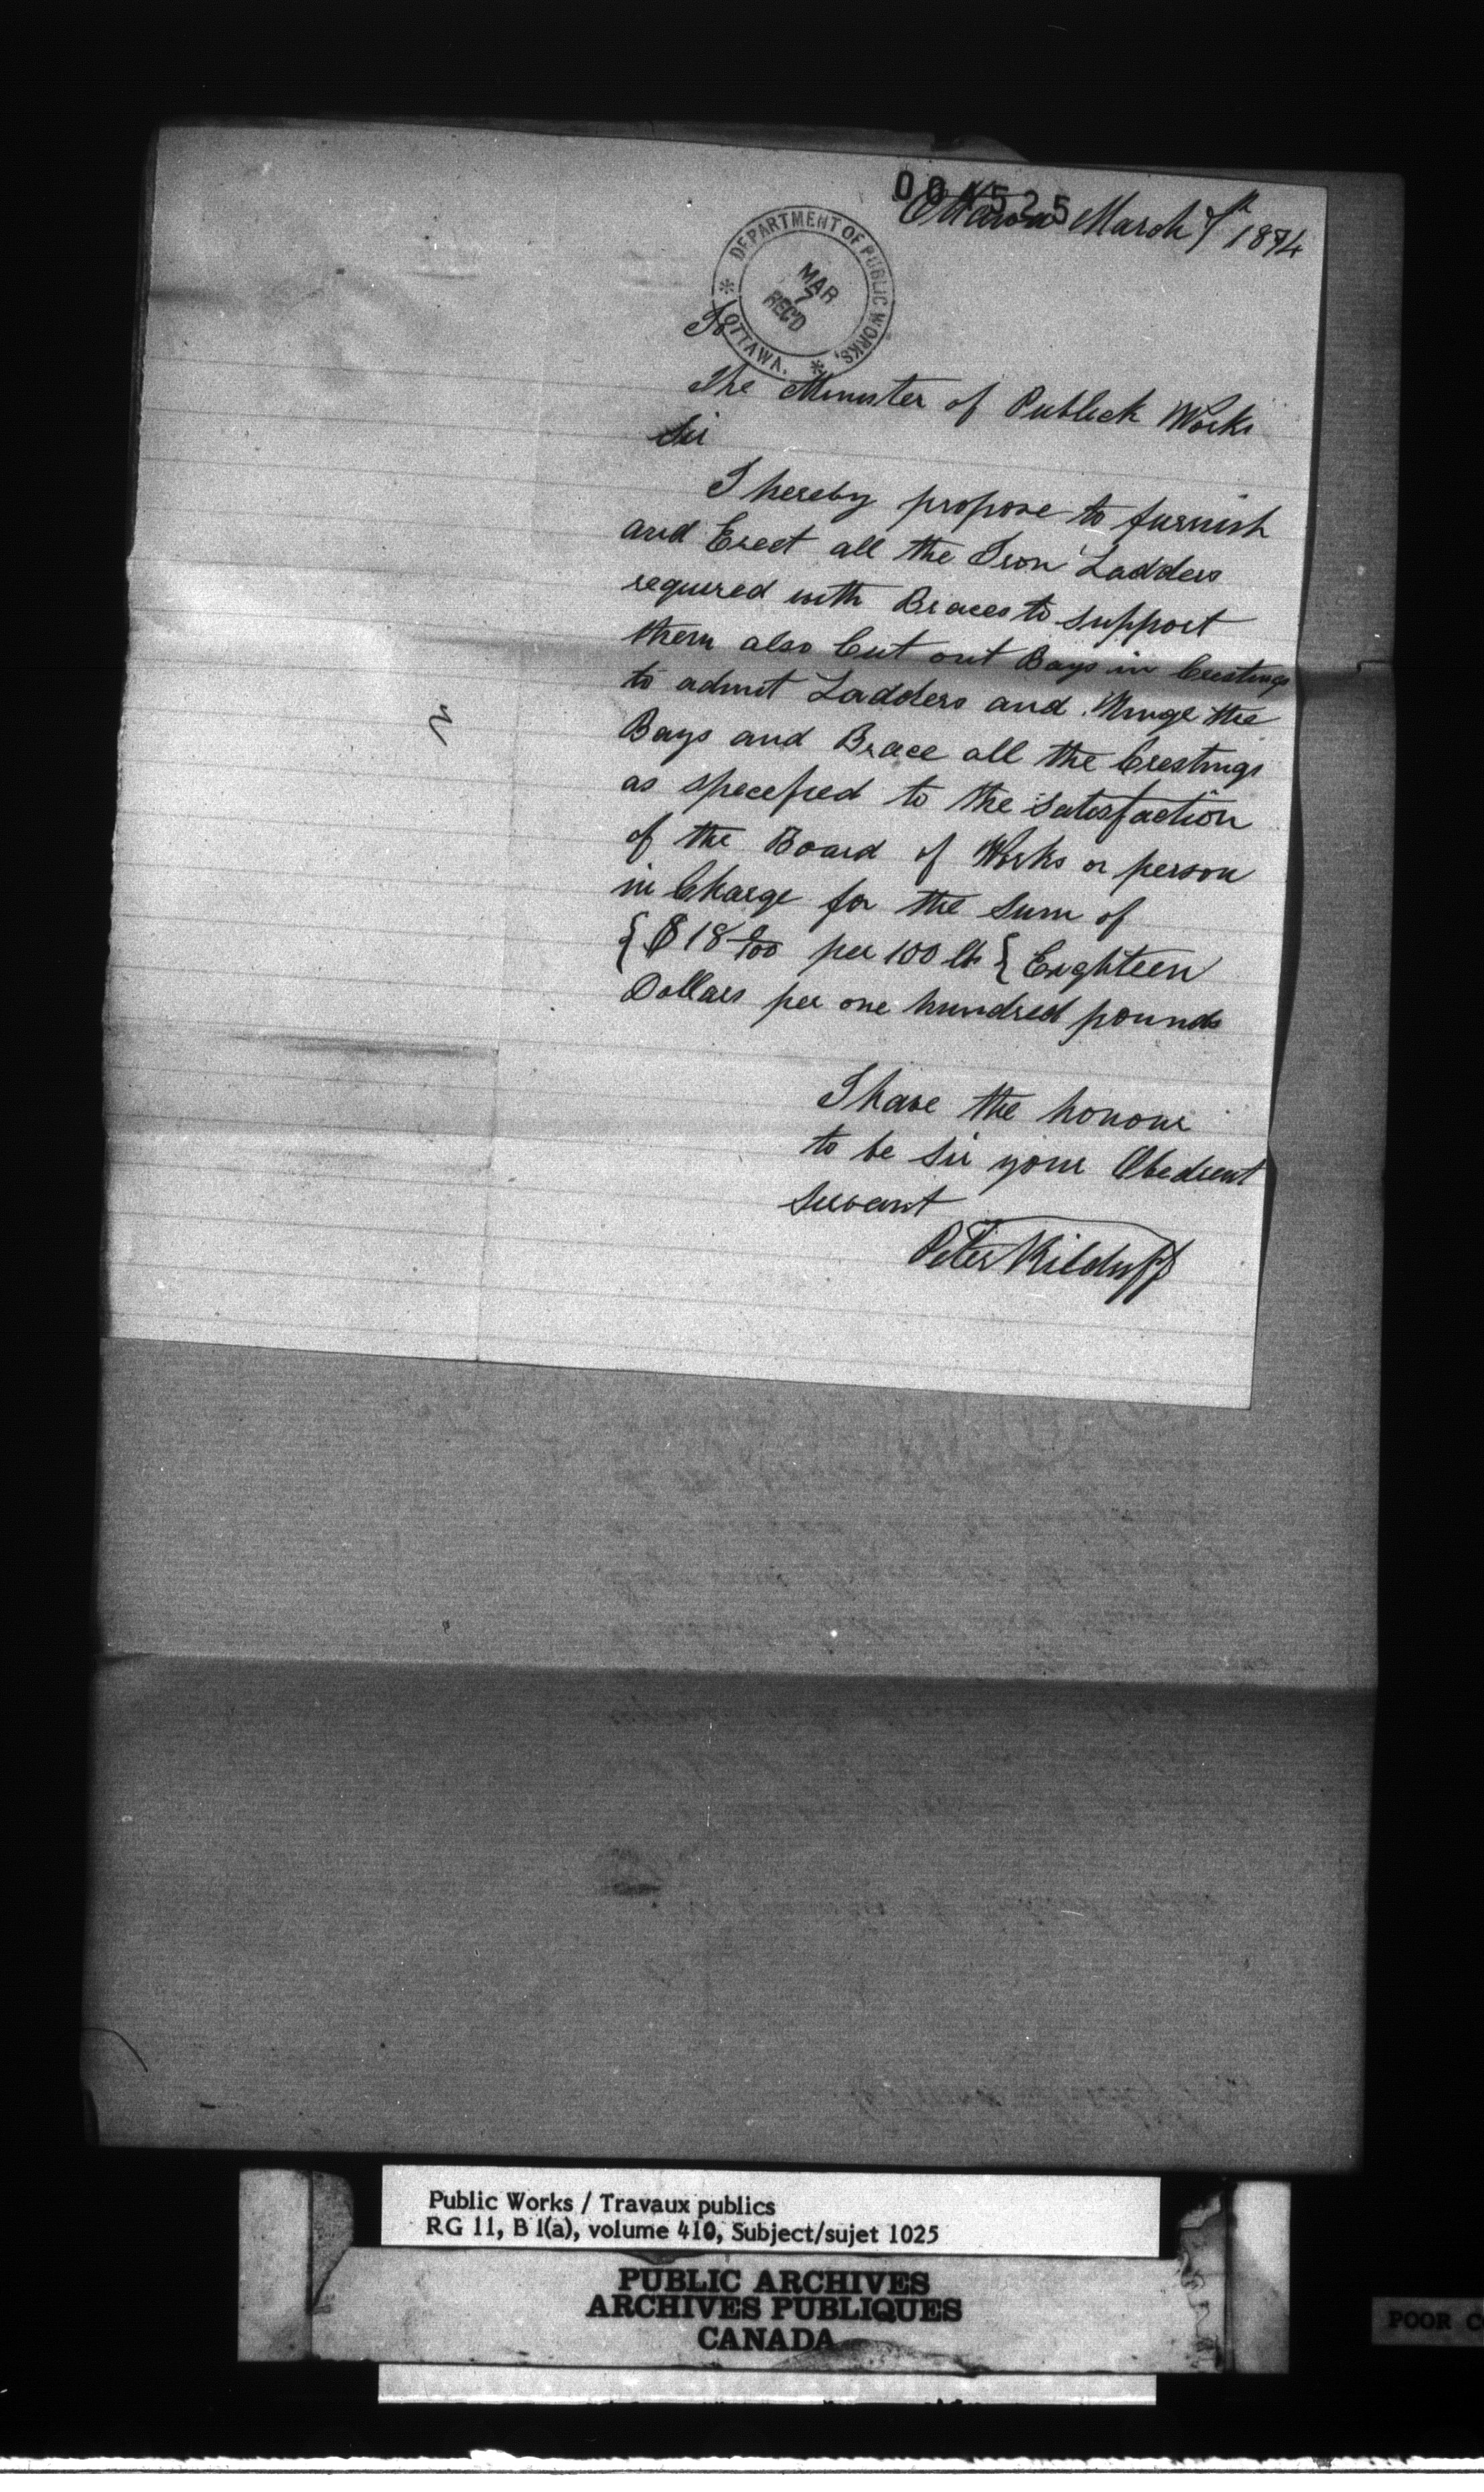 Ottawa March 7th 1874
DEPARTMENT OF PUBLIC WORKS,
OTTAWA.
MAR
7
REC'D
To
The Minister of Publick Works
Sir
I hereby propose to furnish
and Erect all the Iron Ladders
required with Braces to support
them also Cut out Bays in Crestings
to admit Ladders and Hinge the
Bays and Brace all the Crestings
as specefied to the satisfaction
of the Board of Works or person
in Charge for the Sum of
{$18 0/100 per 100 lb} Eighteen
Dollars per one hundred pounds
I have the honour
to be Sir your Obedient
Servant
Peter Kilduff
Public Works / Travaux publics
RG 11, B 1(a), volume 410, Subject/sujet 1025
PUBLIC ARCHIVES
ARCHIVES PUBLIQUES
CANADA
POOR C